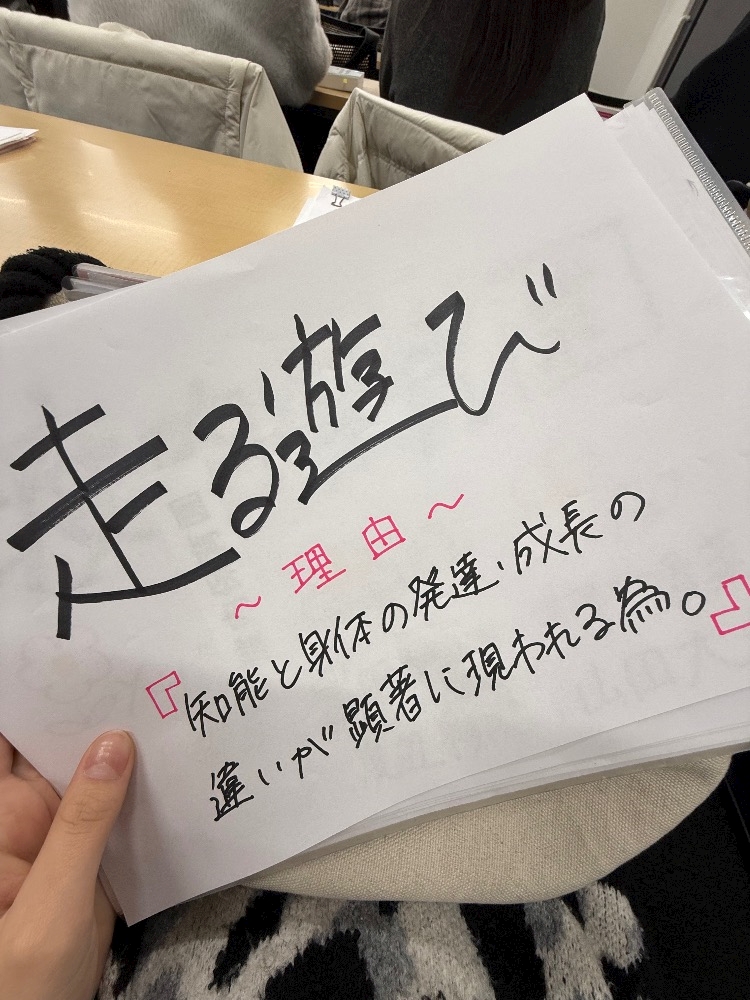 走る遊び
～理由～
『知能と身体の発達・成長の
違いが顕著に現われる為。』